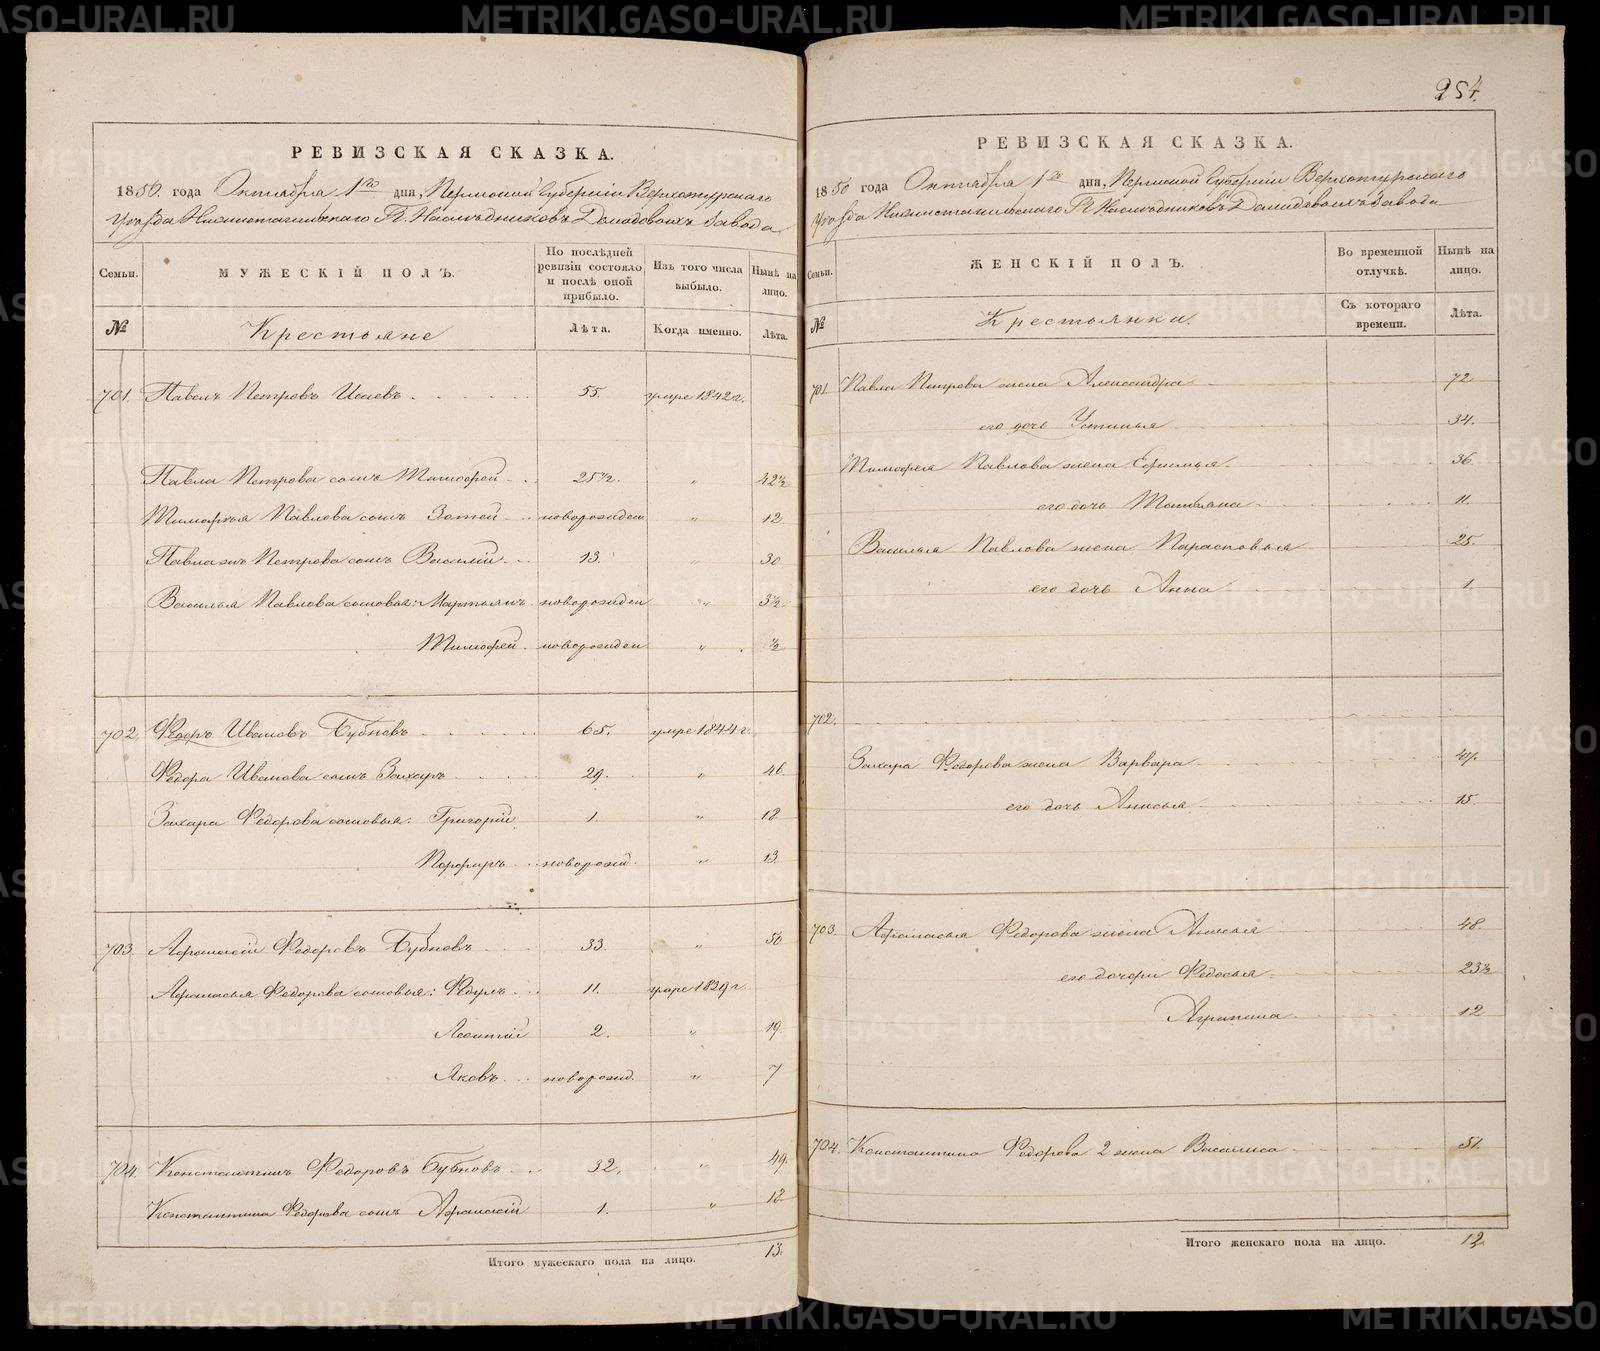 254.
РЕВИЗСКАЯ СКАЗКА.
1850 года Октября 1го дня, Пермской Губернiи Верхотурскаго
Уѣзда Нижнетагильскаго Гг. Наслѣдниковъ Демидовыхъ Завода
Семьи. МУЖЕСКІЙ ПОЛЪ. По послѣдней ревизіи состояло и послѣ оной прибыло. Изъ того числа выбыло. Нынѣ на лицо.
№ Крестьяне Лѣта. Когда именно. Лѣта.
701. Павелъ Петровъ 55. умре 1842 г.
Павла Петрова сынъ Тимофей 25½. " 42½
Тимофѣя Павлова сынъ новорожден " 12
Павла жъ Петрова сынъ Василій 13. " 30
Василья Павлова сыновья: Мартьянъ новорожден " 3½
Тимофей новорожден " ½
702. Федоръ Ивановъ Бубновъ 65. умре 1844 г.
Федора Иванова сынъ Захаръ 29. " 46
Захара Федорова сыновья: Григорій 1. " 18
Порфиръ новорожд. " 13
703. Афанасій Федоровъ Бубновъ 33. " 50
Афанасья Федорова сыновья: Федулъ 11. умре 1839 г.
Леонтій 2. " 19.
Яковъ новорожд. " 7
704. Константинъ Федоровъ Бубновъ 32. " 49.
Константина Федорова сынъ Афанасій 1. " 18
Итого мужескаго пола на лицо. 13.
РЕВИЗСКАЯ СКАЗКА.
1850 года Октября 1го дня, Пермской Губерніи Верхотурскаго
Уѣзда Нижнетагильскаго Гг. Наслѣдниковъ Демидовыхъ Завода
Семьи. ЖЕНСКІЙ ПОЛЪ. Во временной отлучкѣ. Нынѣ на лицо.
№ Крестьянки. Съ котораго времени. Лѣта.
701. Павла Петрова жена Александра 72
его дочь Устинья 34.
Тимофея Павлова жена Ефимья. 36.
его дочь Татьяна 11.
Василья Павлова жена Парасковья 25.
его дочь Анна 1.
702.
Захара Федорова жена Варвара 47.
его дочь Анисья 15.
703. Афанасья Федорова жена Анисья 48.
его дочери Федосья 23½
Агрипина 12
704. Константина Федорова 2 жена Василиса 51.
Итого женскаго пола на лицо. 12
METRIKI.GASO-URAL.RU